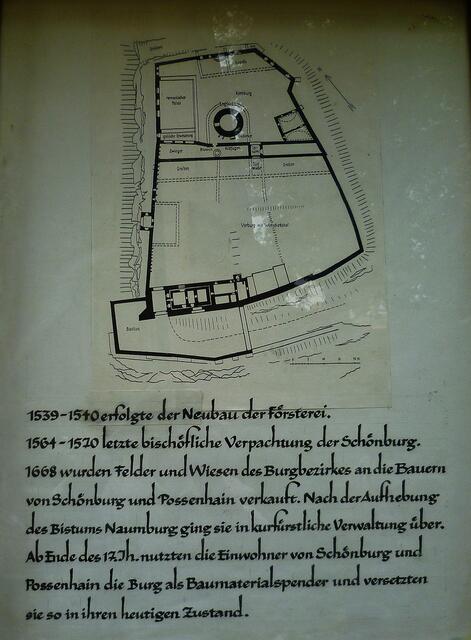 Graben
Kernburg
Romanischer
Palas
gotische Erweiterung
Zwinger
Brunnen
Graben
Graben
Vorburg mit Wirtschaftshof
Bastion
1539-1540 erfolgte der Neubau der Försterei.
1564-1570 letzte bischöfliche Verpachtung der Schönburg.
1668 wurden Felder und Wiesen des Burgbezirkes an die Bauern
von Schönburg und Possenhain verkauft. Nach der Aufhebung
des Bistums Naumburg ging sie in kurfürstliche Verwaltung über.
Ab Ende des 17. Jh. nutzten die Einwohner von Schönburg und
Possenhain die Burg als Baumaterialspender und versetzten
sie so in ihren heutigen Zustand.